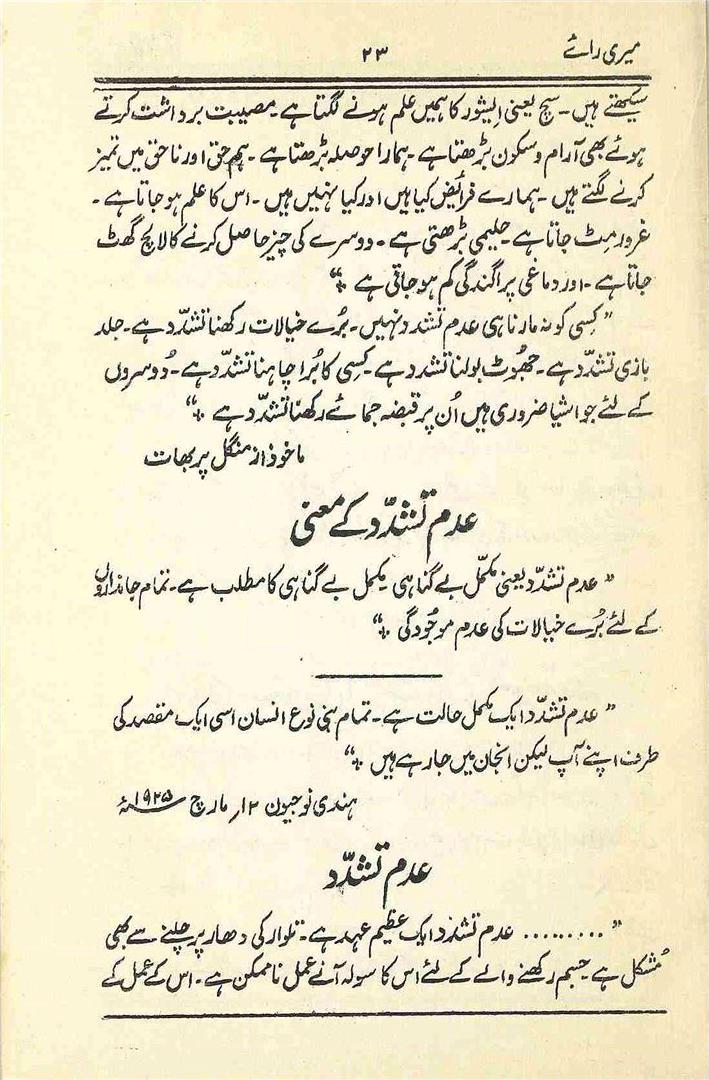 میری رائے ۲۳
سیکھتے ہیں۔ سچ یعنی ایشور کا ہمیں علم ہونے لگتا ہے۔ مصیبت برداشت کرتے
ہوئے بھی آرام و سکون بڑھتا ہے۔ ہمارا حوصلہ بڑھتا ہے۔ ہم حق اور ناحق میں تمیز
کرنے لگتے ہیں۔ ہمارے فرائض کیا ہیں اور کیا نہیں ہیں۔ اس کا علم ہو جاتا ہے۔
غرور مٹ جاتا ہے۔ حلیمی بڑھتی ہے۔ دوسرے کی چیز حاصل کرنے کا لالچ گھٹ
جاتا ہے۔ اور دماغی پراگندگی کم ہو جاتی ہے +“
”کِسی کو نہ مارنا ہی عدم تشدد نہیں۔ بُرے خیالات رکھنا تشدّد ہے۔ جلد
بازی تشدّد ہے۔ جھُوٹ بولنا تشدد ہے۔ کسی کا بُرا چاہنا تشدّد ہے۔ دُوسروں
کے لئے جو اشیا ضروری ہیں اُن پر قبضہ جمائے رکھنا تشدّد ہے +“
ماخوذ از منگل پربھات
عدم تشدّد کے معنی
”عدم تشدّد یعنی مکمّل بے گناہی۔ مکمل بے گناہی کا مطلب ہے۔ تمام جانداروں
کے لئے بُرے خیالات کی عدم موجُودگی +“
”عدم تشدّد ایک مکمل حالت ہے۔ تمام بنی نوع انسان اسی ایک مقصد کی
طرف اپنے آپ لیکن انجان میں جا رہے ہیں +“
ہندی نوجیون ۱۲؍ مارچ ۱۹۲۵ء
عدم تشدّد
”......... عدم تشدّد ایک عظیم عہد ہے۔ تلوار کی دھار پر چلنے سے بھی
مُشکل ہے۔ جسم رکھنے والے کے لئے اس کا سولہ آنے عمل ناممکن ہے۔ اس کے عمل کے